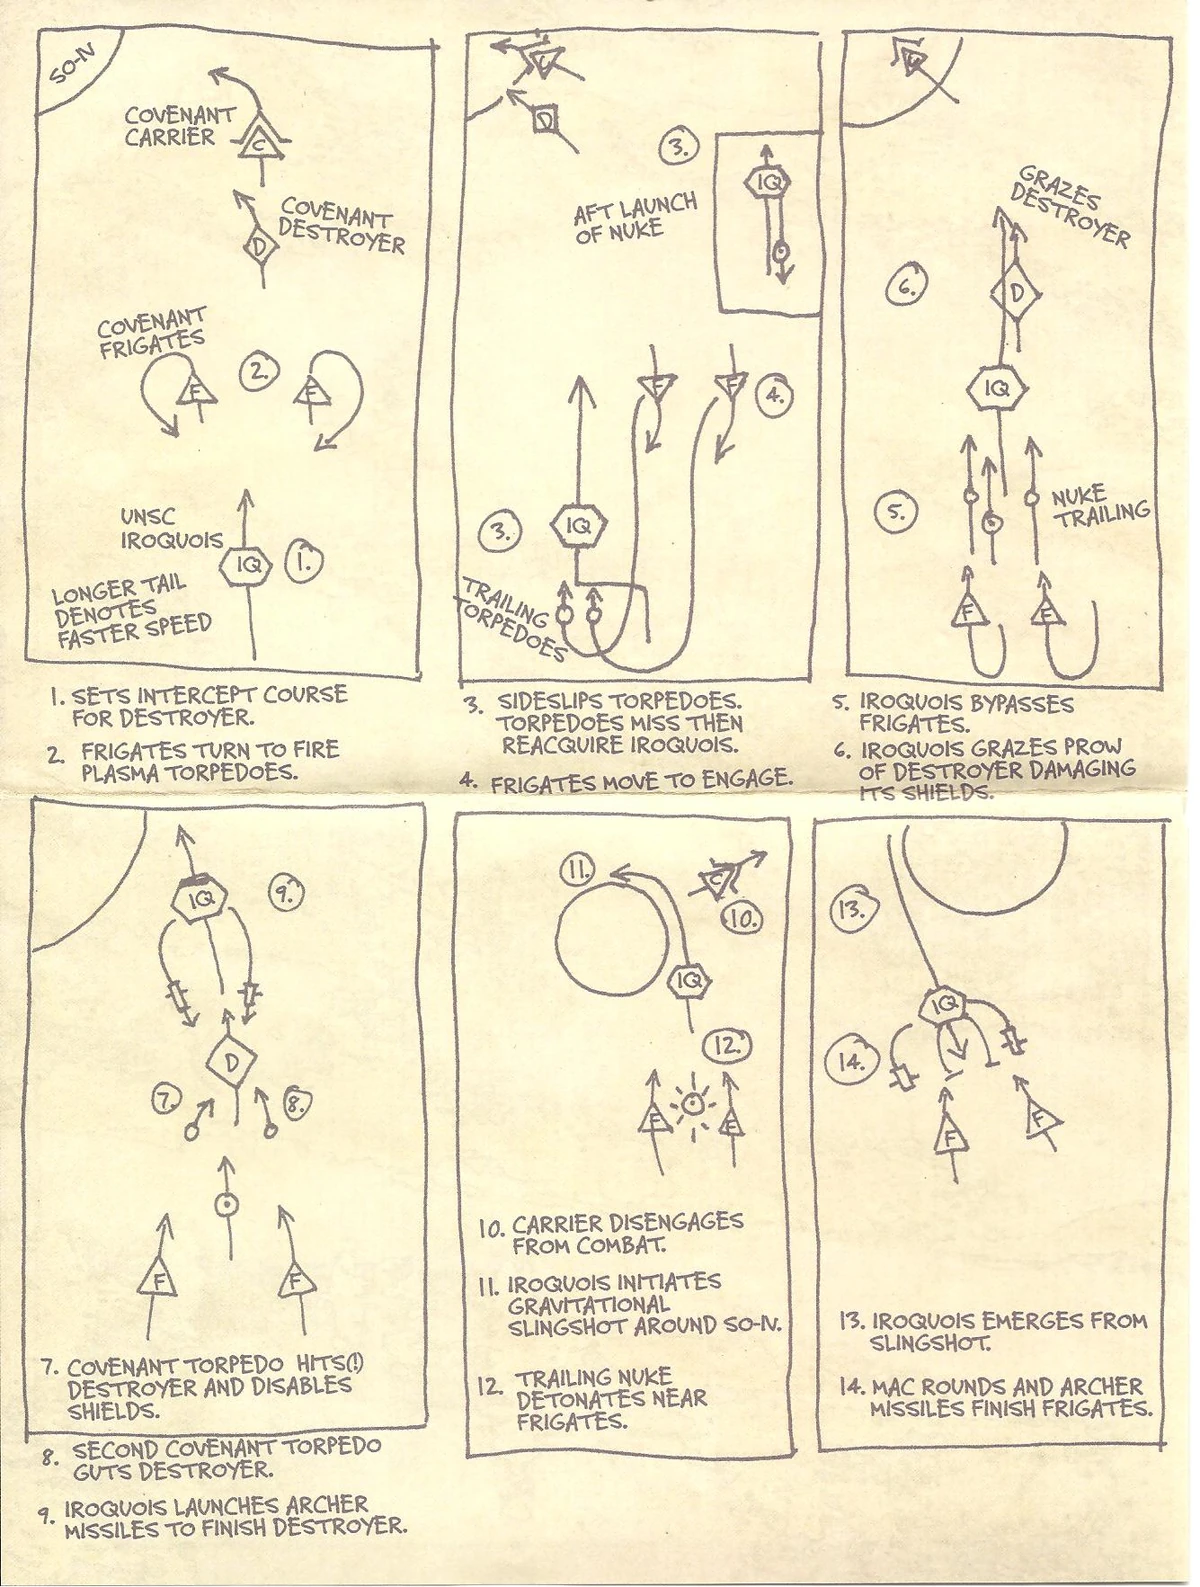 SO-IV
COVENANT
CARRIER
C
COVENANT
DESTROYER
D
COVENANT
FRIGATES
F
2.
F
UNSC
IROQUOIS
IQ
1.
LONGER TAIL
DENOTES
FASTER SPEED
1. SETS INTERCEPT COURSE
FOR DESTROYER.
2. FRIGATES TURN TO FIRE
PLASMA TORPEDOES.
C
D
3.
IQ
AFT LAUNCH
OF NUKE
F
F
4.
3.
IQ
TRAILING
TORPEDOES
3. SIDESLIPS TORPEDOES.
TORPEDOES MISS THEN
REACQUIRE IROQUOIS.
4. FRIGATES MOVE TO ENGAGE.
C
GRAZES
DESTROYER
6.
D
IQ
5.
NUKE
TRAILING
F
F
5. IROQUOIS BYPASSES
FRIGATES.
6. IROQUOIS GRAZES PROW
OF DESTROYER DAMAGING
ITS SHIELDS.
IQ
9.
D
7.
8.
F
F
7. COVENANT TORPEDO HITS(!)
DESTROYER AND DISABLES
SHIELDS.
8. SECOND COVENANT TORPEDO
GUTS DESTROYER.
9. IROQUOIS LAUNCHES ARCHER
MISSILES TO FINISH DESTROYER.
11.
C
10.
IQ
12.
F
F
10. CARRIER DISENGAGES
FROM COMBAT.
11. IROQUOIS INITIATES
GRAVITATIONAL
SLINGSHOT AROUND SO-IV.
12. TRAILING NUKE
DETONATES NEAR
FRIGATES.
13.
IQ
14.
F
F
13. IROQUOIS EMERGES FROM
SLINGSHOT.
14. MAC ROUNDS AND ARCHER
MISSILES FINISH FRIGATES.